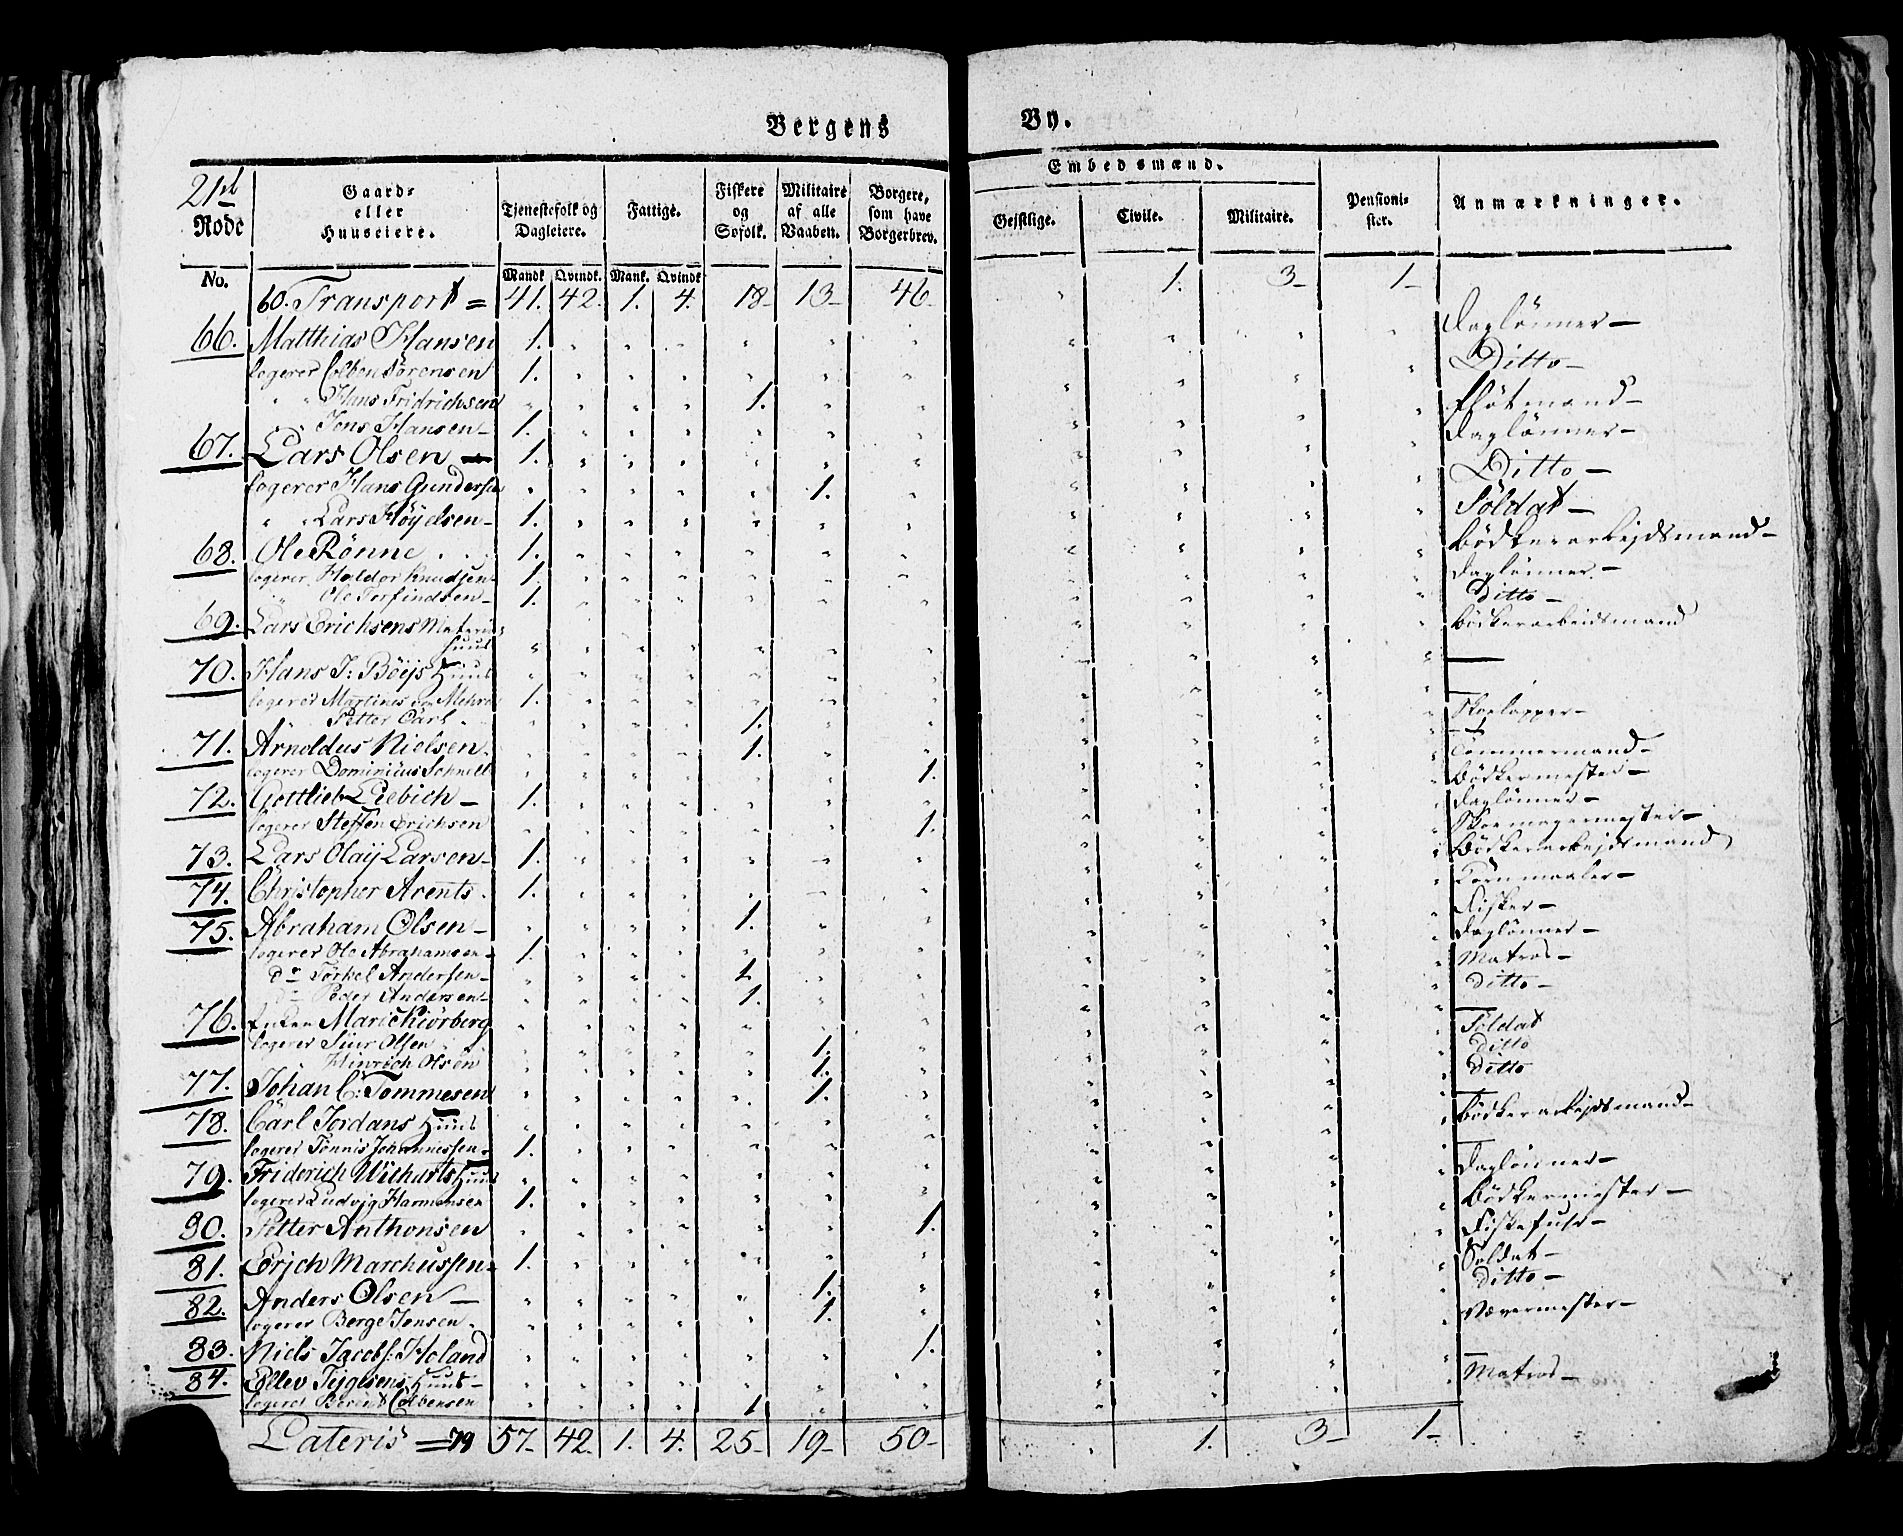 Bergens By.
Embedsmænd.
21de Rode
Gaard- eller Huuseiere.
Tjenestefolk og Dagleiere.
Fattige.
Fiskere og Søfolk.
Militaire af alle Vaaben.
Borgere, som have Borgerbrev.
Gejstlige.
Civile.
Militaire.
Pensionister.
Anmærkninger.
No.
Mandk. Qvindk. Mank. Qvindk.
60. Transport = 41. 42. 1. 4. 18- 13- 46- " 1. 3- 1-
66. Matthias Hansen 1. Daglønner-
logerer Colben Sørensen 1. Ditto-
" " Hans Fridrichsen 1. Fløtmand-
Jens Hansen- 1. Daglønner-
67. Lars Olsen 1. Ditto-
logerer Hans Gundersen 1. Soldat-
" " Lars Høyelsen- 1. Bødkerarbejdsmand-
68. Ole Rønne . . . 1. Daglønner-
logerer Haldor Knudsen- 1. Ditto-
" Ole Torfindsen- 1. Bødkerarbeidsmand
69. Lars Erichsens Materiel
Huus
70. Hans J: Böijs Huus
logerer Martines von Mehren 1. Skoelapper-
Petter Carl 1.
71. Arnoldus Nielsen 1. Tømmermand-
logerer Dominicus Schnell 1. Bødkermester-
72. Gottlieb Liebich- 1. Daglønner-
logerer Steffen Erichsen 1. Skoemagermester-
73. Lars Olaij Larsen- 1. Bødkerarbejdsmand
74. Christopher Arents. 1. Kornmaaler-
75. Abraham Olsen- 1. Fisker-
logerer Ole Abrahamsen- 1. Daglønner-
do Torkel Andersen- 1. Matros-
do Peder Andersen- 1. ditto-
76. Enken Marie Kiörberg
logerer Siur Olsen 1. Soldat
Hinrich Olsen 1. Ditto
77. Johan C: Tommesen 1. Ditto
78. Carl Jordans Huus
logerer Tönnis Johannessen. 1. Bødkerarbejdsmand-
79. Friderich Wilharts Huus
logerer Ludvig Harmensen 1. Daglønner-
80. Petter Anthonsen 1. Bødkermester-
81. Erich Marchussen- 1.
82. Anders Olsen- 1. Soldat-
logerer Berge Jensen. 1. Ditto-
83. Niels Jacobs: Holand 1. Vævermester-
84. Ellev Tejglsens Huus-
logerer Berent Colbensen 1. Matros-
Lateris = 79 57- 42 1. 4. 25- 19- 50- 1. 3- 1-